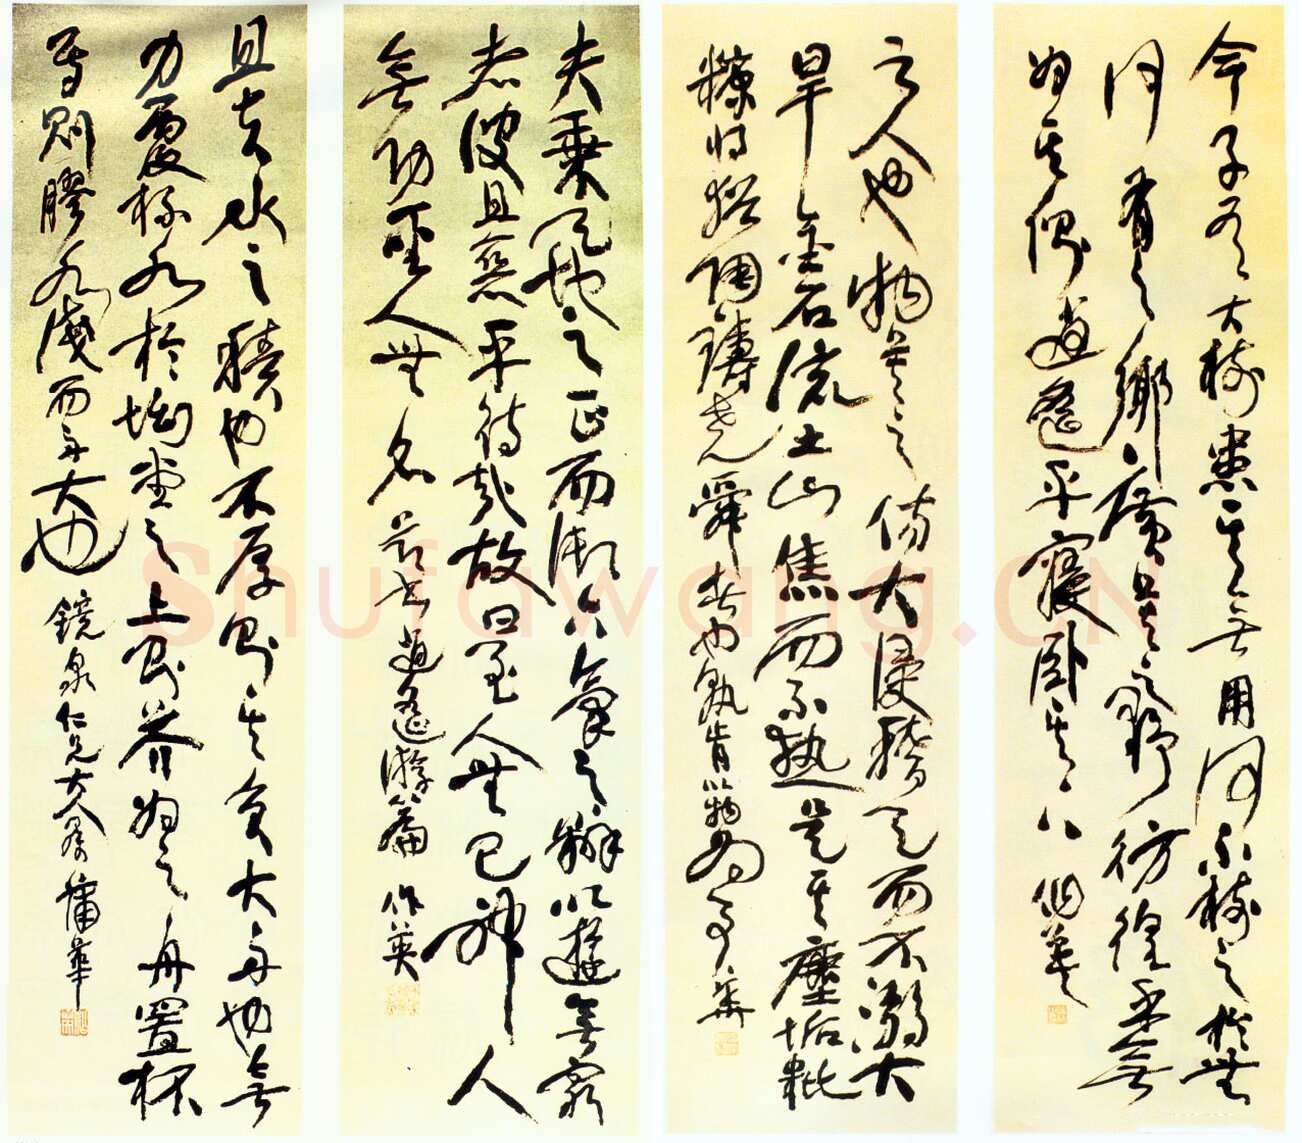 今子有大樹患其無用何不樹之於無
何有之鄉廣莫之野彷徨乎無
為其側逍遙乎寢臥其下 作英
之人也物莫之傷大浸稽天而不溺大
旱金石流土山焦而不熱是其塵垢粃
糠將猶陶鑄堯舜者也孰肯以物為事 華
夫乘天地之正而御六氣之辯以遊無窮
者彼且惡乎待哉故曰至人無己神人
無功聖人無名 書逍遙游篇 作英
且夫水之積也不厚則其負大舟也無
力覆杯水於坳堂之上則芥為之舟置杯
焉則膠水淺而舟大也 鏡泉仁兄大人屬 蒲華
Shufawang.CN